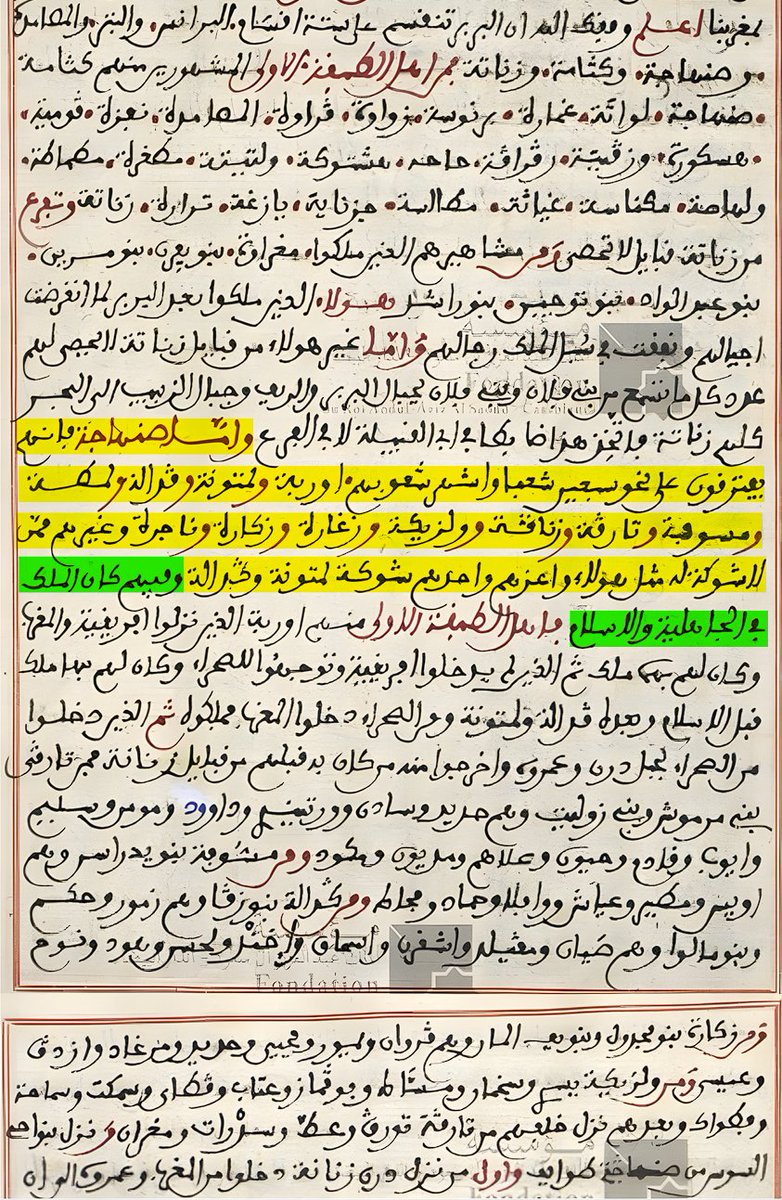 لمغربنا اعلم وفقك الله ان البربر تنقسم على ستة اقسام البرانس والبتر والمصامدة
وصنهاجة وكتامة وزناتة من اهل الطبقة الاولى المشهورين منهم كتامة
صنهاجة لواتة غمارة برنوسة زواوة فزاولة المصامدة نفزة قومية
هسكورة رفراقة حاحه هشتوكة ولتيتة مطغرة مطماطة
ولهاصة مكناسة غياثة مكلاسة جزناية يازغة ترارة زناتة وتفرع
من زناتة قبايل لا تحصى ومن مشاهيرهم الذين ملكوا مغراوة بنو يفرن بنو مرين
بنو عبد الواد بنو توجين بنو راشد هولاء الذين ملكوا بعد البربر لما انقرضت
اجيالهم ونفقت في سبل الملك رجالهم واما غير هولاء من قبايل زناتة لا تحصى لهم
عدد كل ما تسمع من بني فلان وبني فلان بجبال البربر والريف وجبال الزبيب الى البحر
كلهم زناتة في الفرع واما صنهاجة فانهم
يفترقون على نحو سبعين شعبا واشهر شعوبهم اوربة ولمتونة وقدالة ولمطة
ومسوفة وتارقة وزناقة وولزيكة وزغارة وزكارة وناجرة وغيرهم ممن
لا شوكة له مثل هولاء واعزهم واحدهم شوكة لمتونة وكدالة وفيهم كان الملك
في الجاهلية والاسلام فاهل الطبقة الاولى منهم اوربة الذين نزلوا افريقية والمغرب
وكان لهم بهما ملك ثم الذين لم يدخلوا افريقية وتوجهوا للصحراء وكان لهم بها ملك
قبل الاسلام وبعده قدالة ولمتونة ومن الصحراء دخلوا المغرب فملكوه ثم الذين دخلوا
من الصحراء لجبل درن وعمروه واخرجوا منه من كان به قبلهم من قبايل زناتة فمن تارقى
بنى مرموش وبنى زولت وهم حديد وسادن وورتنيس وداوود ومومن وسليم
وايوب وفادم ورحيون وعلاهم ومديون ومكود ومن مسوفة بنو يدراسن وهم
اويس ومطير وعياش ووافلا وحماد ومجاط ومن كدالة بنو زقاو وهم زمور وحكم
وبنو مالوا وهم ضيان ومفيلد واشقرن واسحاق ولحسن وهود ونوح
ومن زكارة بنو مجدول وبنو يعب المار وهم قروان ويحيى وحديد ومرغاد وازدق
وعيسى ومن ولزيكة يبس وسخمان ومستاط وبوقماز وعتاب وقطاى وسمكت وسماحة
ومكواك وبعدهم نزل خلفهم من تارقة تورق وعطا وسدرات ومغران ونزل بنواحى
السوس من صنهاجة طوايف واول من نزل درن زناتة دخلوا من المغرب وعمروه الوان